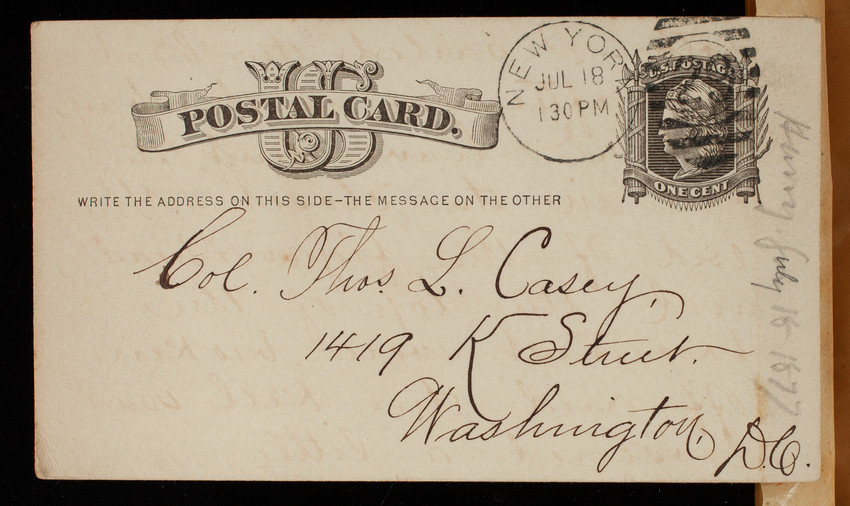 US
POSTAL CARD.
NEW YORK
JUL 18
1 30 PM
U.S. POSTAGE
ONE CENT
WRITE THE ADDRESS ON THIS SIDE–THE MESSAGE ON THE OTHER
Col. Thos. L. Casey,
1419 K Street.
Washington,
D.C.
Henry, July 18-1877